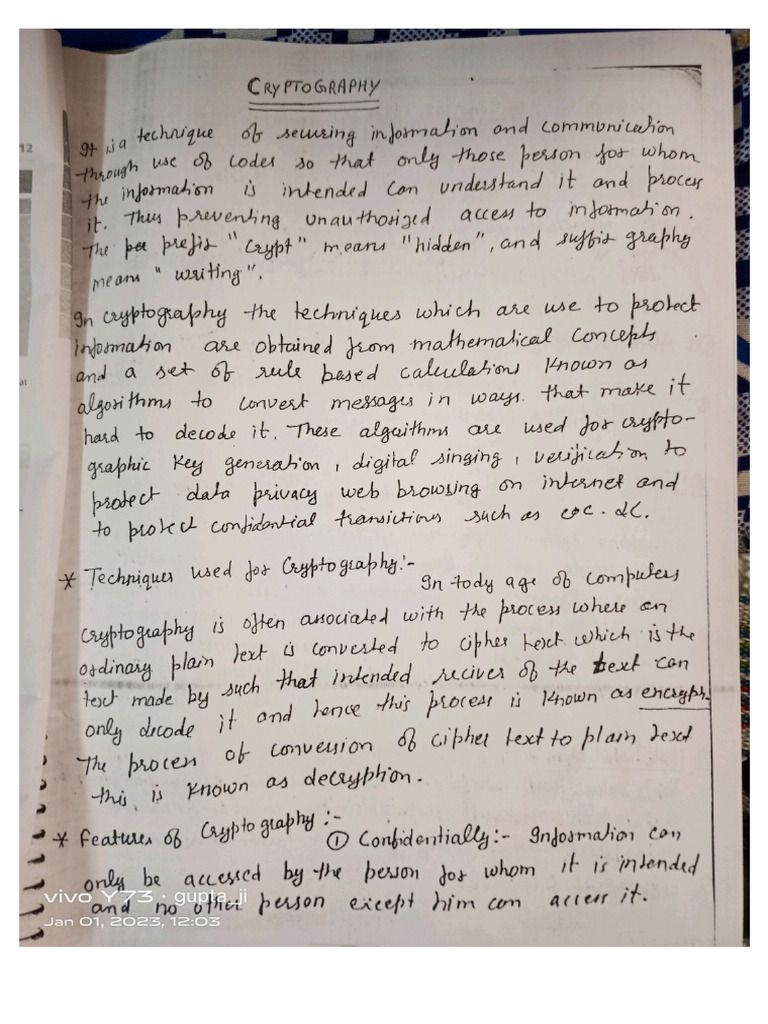 CRYPTOGRAPHY
It is a technique of securing information and communication
through use of codes so that only those person for whom
the information is intended can understand it and process
it. Thus preventing unauthorized access to information.
The prefix "Crypt" means "hidden", and suffix graphy
means "writing".
In cryptography the techniques which are use to protect
information are obtained from mathematical concepts
and a set of rule based calculations known as
algorithms to convert messages in ways that make it
hard to decode it. These algorithms are used for crypto-
graphic key generation, digital singing, verification to
protect data privacy web browsing on internet and
to protect confidential transictions such as
* Techniques used for Cryptography:-
In tody age of computers
cryptography is often associated with the process where an
ordinary plain text is converted to cipher text which is the
text made by such that intended reciver of the text can
only decode it and hence this process is known as encryph.
The process of conversion of cipher text to plain text
this is known as decryption.
* Features of Cryptography:-
① Confidentially:- Information can
only be accessed by the person for whom it is intended
and no other person except him can access it.
vivo Y73 · gupta_ji
Jan 01, 2023, 12:03
12
at